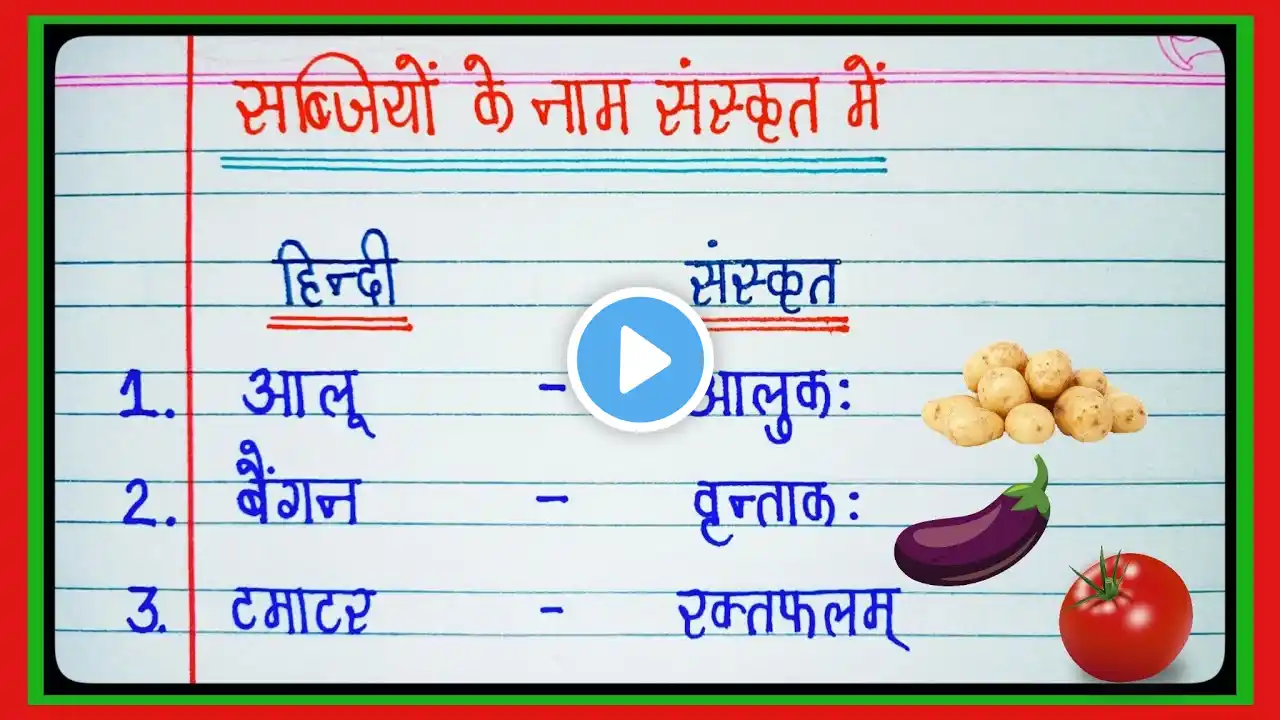 सब्जियों के नाम संस्कृत में
हिन्दी संस्कृत
1. आलू - आलुकः
2. बैंगन - वृन्ताकः
3. टमाटर - रक्तफलम्